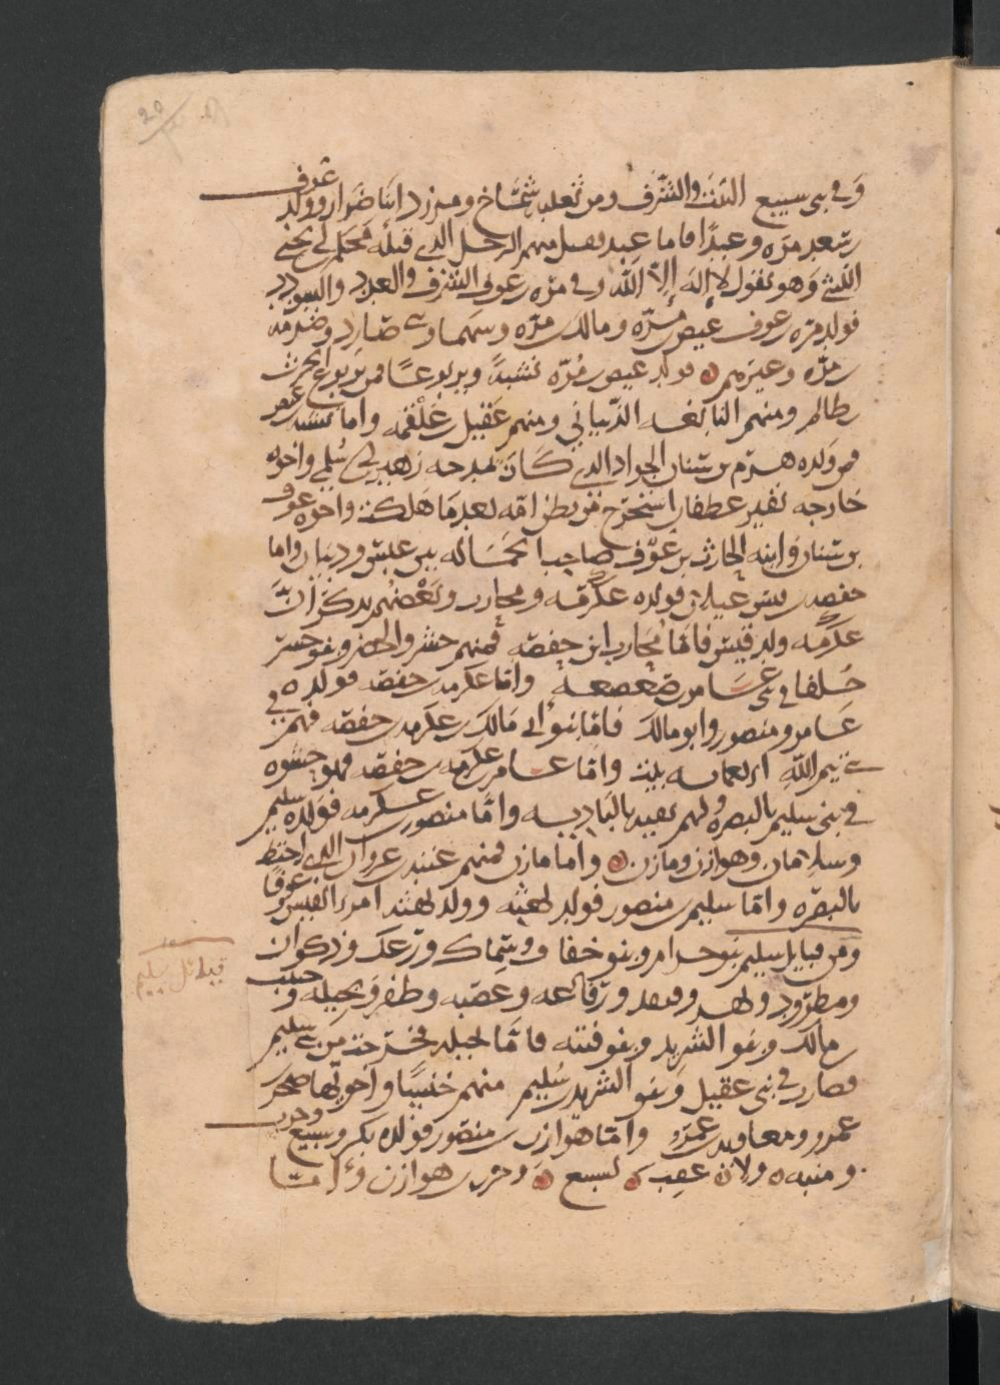 وفي بني سبيع البيت والشرف ومن ثعلبة شماخ ومزرد ابنا ضرار وولد عوف
بن سعد مره وعبدا فاما عبد فصل منهم الرجل الذي قتله محلم بن
الليثي وهو يقول لا إله إلا الله وفي مره بن عوف الشرف والعدد والسودد
فولد مره بن عوف غيض بن مره ومالك بن مره وسهما وبني صارد وصرمه
بن مره وغيرهم فولد غيض بن مره نشبة ويربوعا فمن يربوع الحرث
بن ظالم ومنهم النابغه الذبياني ومنهم عقيل بن علفه واما نشبه بن غيض
فمن ولده هرم بن سنان الجواد الذي كان يمدحه زهير بن ابي سلمى واخوه
خارجه بقير غطفان استخرج من بطن امه بعد ما هلكت واخوه عوف
بن سنان وابنه الحارث بن عوف صاحب الحماله بين عبس وذبيان واما
حفصه بن قيس عيلان فولده عكرمه ومحارب وبعضهم يذكر ان
عكرمه ولد قيس فاما محارب ابن حفصه فمنهم جسر والخضر وبنو جسر
حلفا في بني عامر بن صعصعه واما عكرمه بن حفصه فولده
عامر ومنصور وابو مالك فاما بنو ابي مالك بن عكرمه بن حفصه فهم في
بني تيم الله واما عامر بن عكرمه بن حفصه فهو حشوه
في بني سليم بالبصره ولهم بقيه بالباديه واما منصور بن عكرمه فولده سليم
وسلامان وهوازن ومازن واما مازن فمنهم عتبه بن غزوان الذي اختط
بالبصره واما سليم بن منصور فولد بهثه وولد بهثه امرؤ القيس وعوفا
ومن قبايل سليم بنو حرام وبنو خفاف وسماك ورعل وذكوان
ومطرود وبهز وقنفذ ورفاعه وعصيه وظفر وبجيله وحبيب
بن مالك وبنو الشريد وبنو قنفذ فاما بجيله فخرجت من بني سليم
فصارت في بني عقيل وبنو الشريد بن سليم منهم خنسا واخويها صخر
عمرو ومعاويه بن عمرو واما هوازن بن منصور فولده بكر وسبيع وحرب
ومنبه ولان عقب لسبيع وحرب بن هوازن واما
قبائل سليم